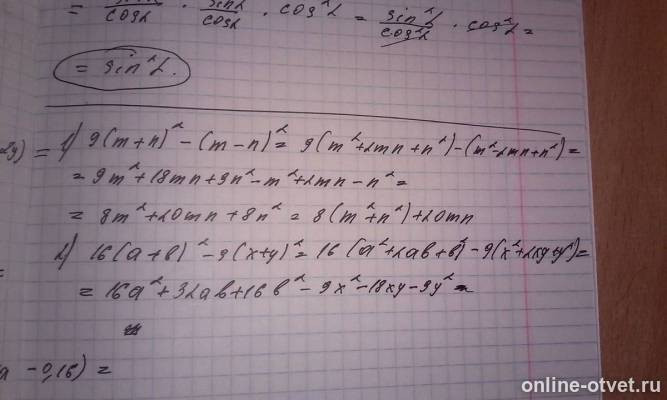 = sin²α/cosα · sinα/cosα · cos²α = sin²α/cos²α · cos²α =
= sin²α.
2y) = 1) 9(m+n)² - (m-n)² = 9(m²+2mn+n²)-(m²-2mn+n²) =
= 9m²+18mn+9n²-m²+2mn-n² =
= 8m²+20mn+8n² = 8(m²+n²)+20mn
2) 16(a+b)² - 9(x+y)² = 16(a²+2ab+b²)-9(x²+2xy+y²) =
= 16a²+32ab+16b²-9x²-18xy-9y²
a - 0,16) =
online-otvet.ru